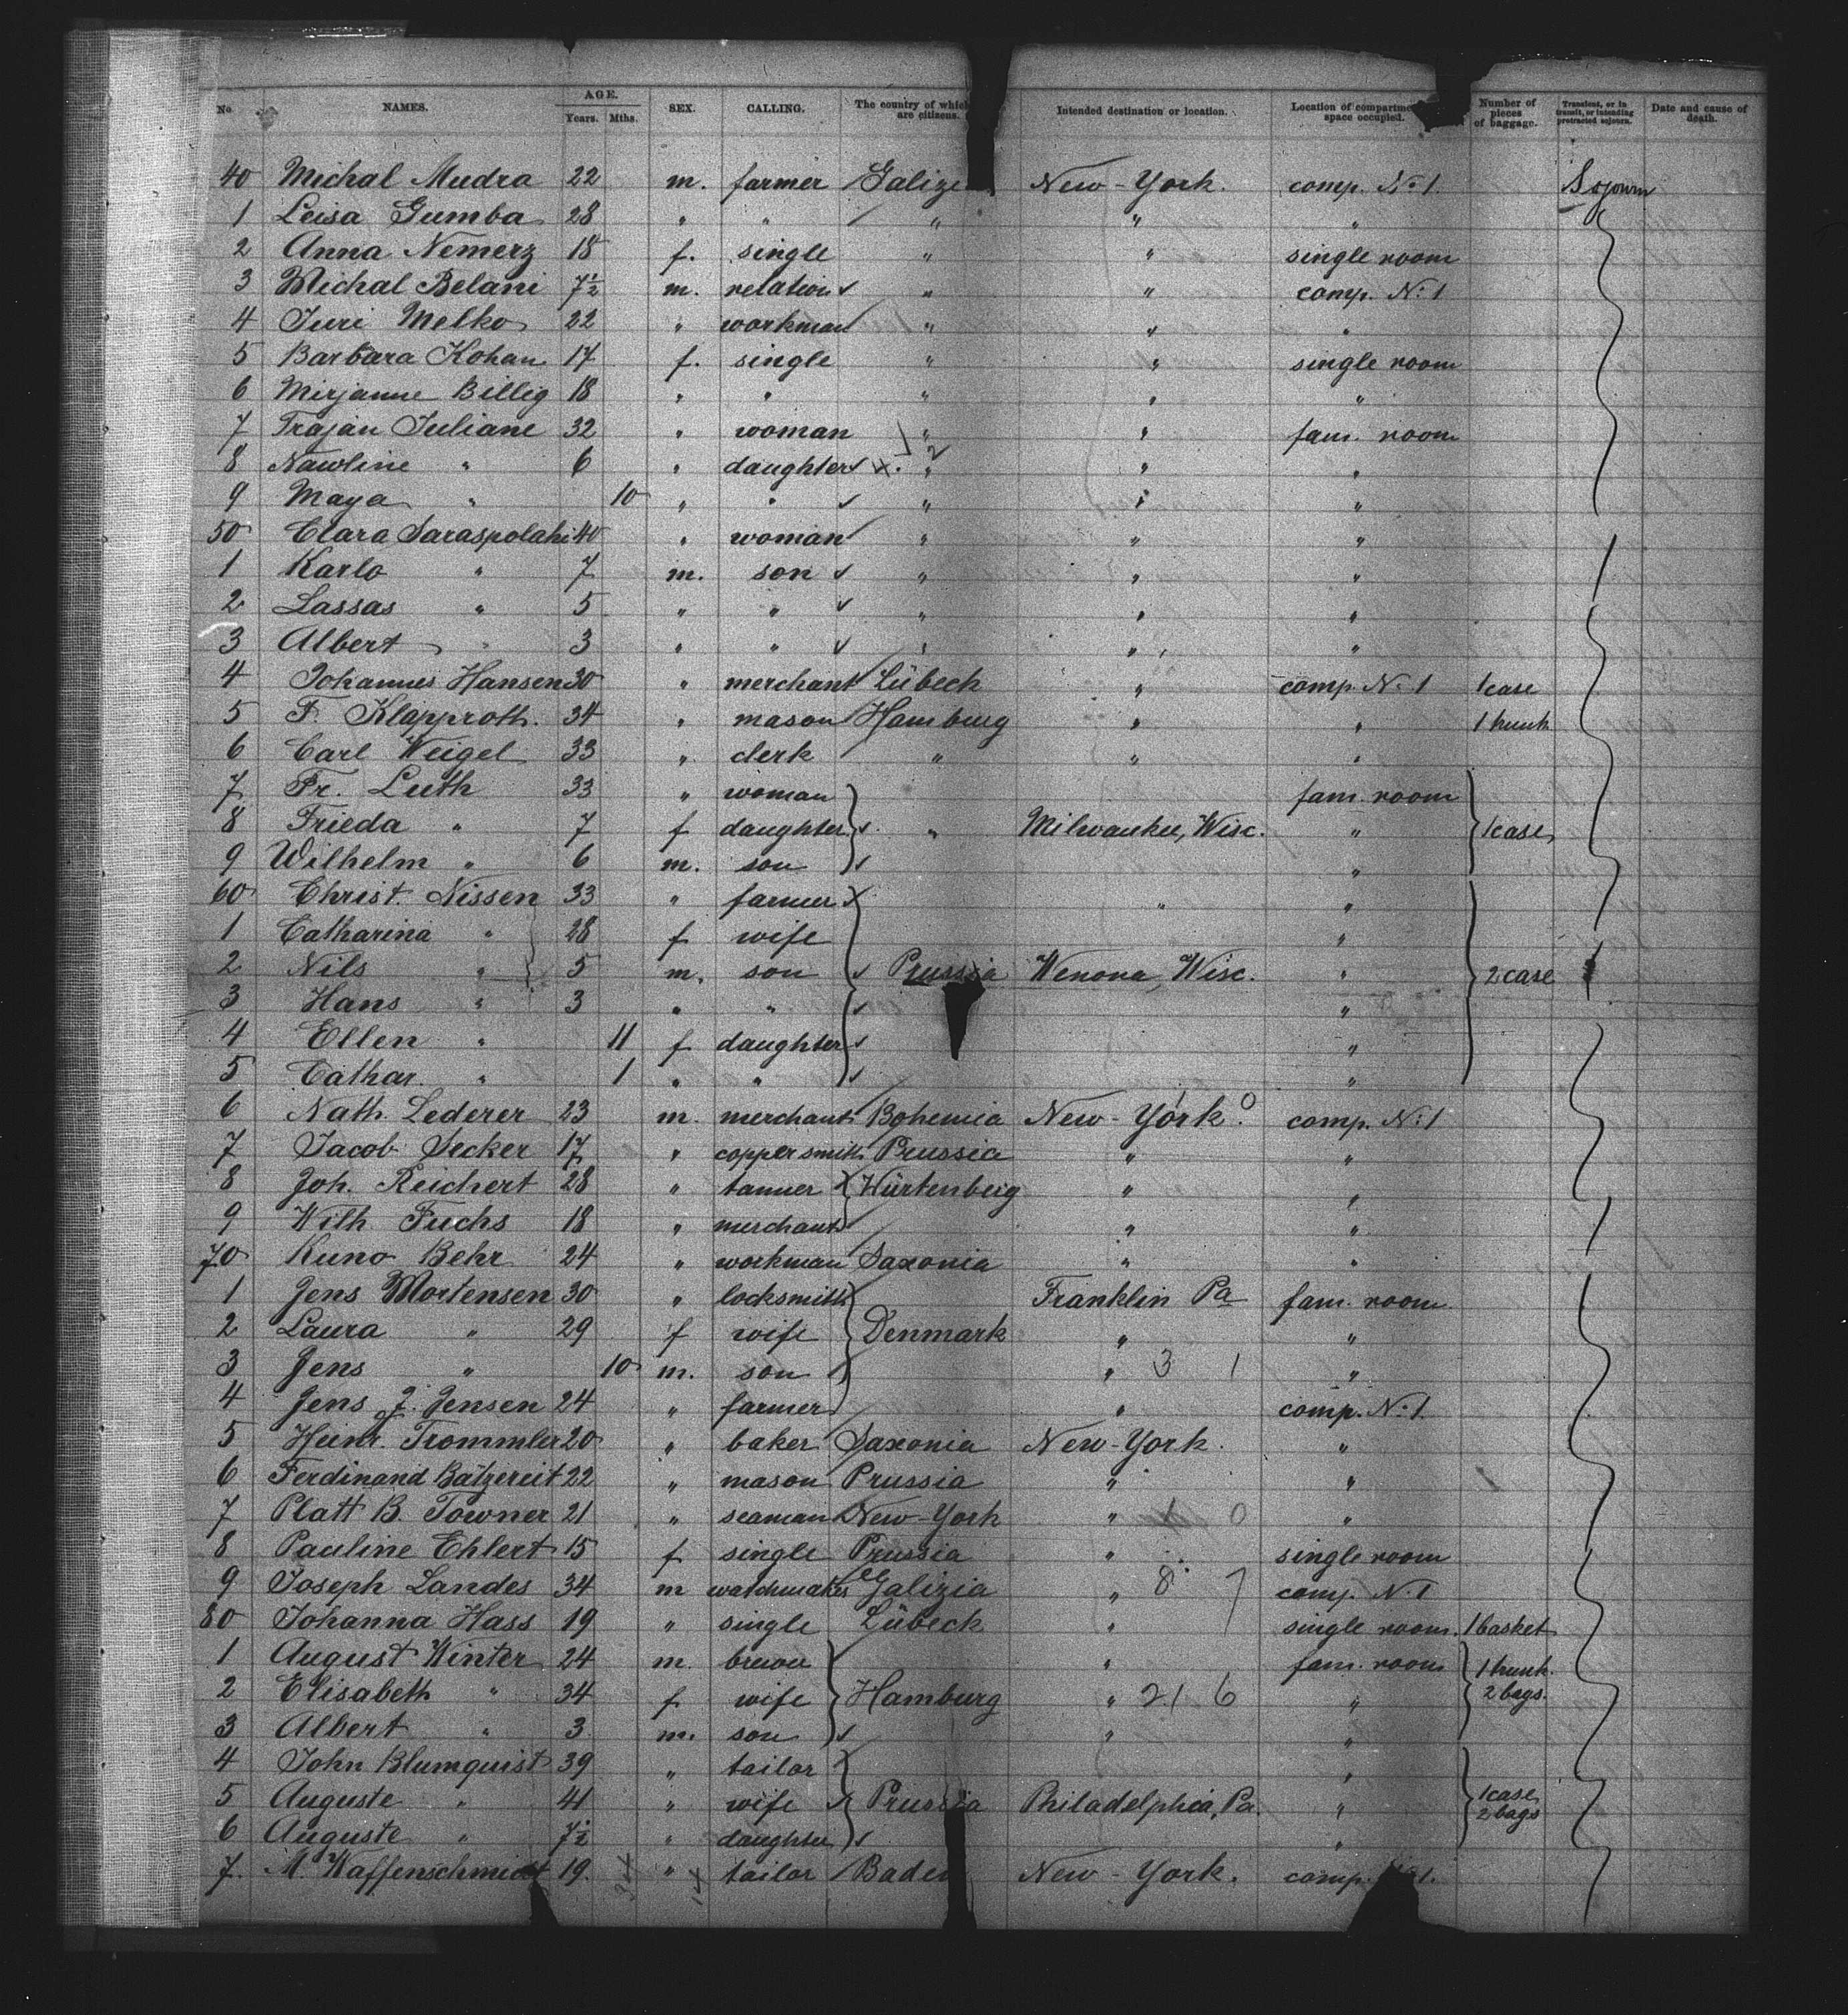 No. NAMES. AGE. Years. Mths. SEX. CALLING. The country of which are citizens. Intended destination or location. Location of compartme space occupied. Number of pieces of baggage. Transient, or in transit, or intending protracted sojourn. Date and cause of death.
40 Michal Mudra 22 m. farmer Galize New-York. comp. No 1 Sojourn
1 Leisa Gumba 28 " " " " "
2 Anna Nemerz 18 f. single " " single room
3 Michal Belani 7½ m. relation " " comp. No 1
4 Juri Melko 22 " workman " " "
5 Barbara Kohan 17 f. single " " single room
6 Mirjanne Billig 18 " " " " "
7 Trajan Juliane 32 " woman " " fam. room
8 Nawline " 6 " daughter " " "
9 Maya " 10 " " " " "
50 Clara Saraspolahi 40 " woman " " "
1 Karlo " 7 m. son " " "
2 Lassas " 5 " " " " "
3 Albert " 3 " " " " "
4 Johannes Hansen 30 " merchant Lübeck " comp. No 1 1 case
5 F. Klapproth. 34 " mason Hamburg " " 1 trunk
6 Carl Weigel 33 " clerk " " "
7 Fr. Luth 33 " woman fam. room
8 Frieda " 7 f daughter " Milwaukee, Wisc. " 1 case
9 Wilhelm " 6 m. son "
60 Christ. Nissen 33 " farmer " "
1 Catharina " 28 f wife "
2 Nils " 5 m. son Prussia Wenona, Wisc. " 2 case
3 Hans " 3 " " "
4 Ellen " 11 f daughter "
5 Cathar. " 1 " " "
6 Nath. Lederer 23 m. merchant Bohemia New-York. 0 comp. No 1
7 Jacob Secker 17 " coppersmith Prussia " "
8 Joh. Reichert 28 " tanner Würtenberg " "
9 Wilh Fuchs 18 " merchant " "
70 Kuno Behr 24 " workman Saxonia " "
1 Jens Mortensen 30 " locksmith Franklin Pa fam. room
2 Laura " 29 f wife Denmark " "
3 Jens " 10 m. son " 3 1 "
4 Jens J. Jensen 24 " farmer " comp. No 1
5 Heinr. Trommler 20 " baker Saxonia New-York. "
6 Ferdinand Batzereit 22 " mason Prussia " "
7 Platt B. Towner 21 " seaman New-York " 1 0 "
8 Pauline Ehlert 15 f single Prussia " single room
9 Joseph Landes 34 m watchmaker Galizia " 8 7 comp. No 1
80 Johanna Hass 19 " single Lübeck " single room. 1 basket
1 August Winter 24 m. brewer " fam. room 1 trunk.
2 Elisabeth " 34 f wife Hamburg " 21 6 " 2 bags.
3 Albert " 3 m. son " "
4 John Blumquist 39 " tailor "
5 Auguste " 41 " wife Prussia Philadelphia, Pa. " 1 case 2 bags
6 Auguste " 7½ " daughter "
7. M. Waffenschmidt 19. " tailor Baden New-York. comp. 1.